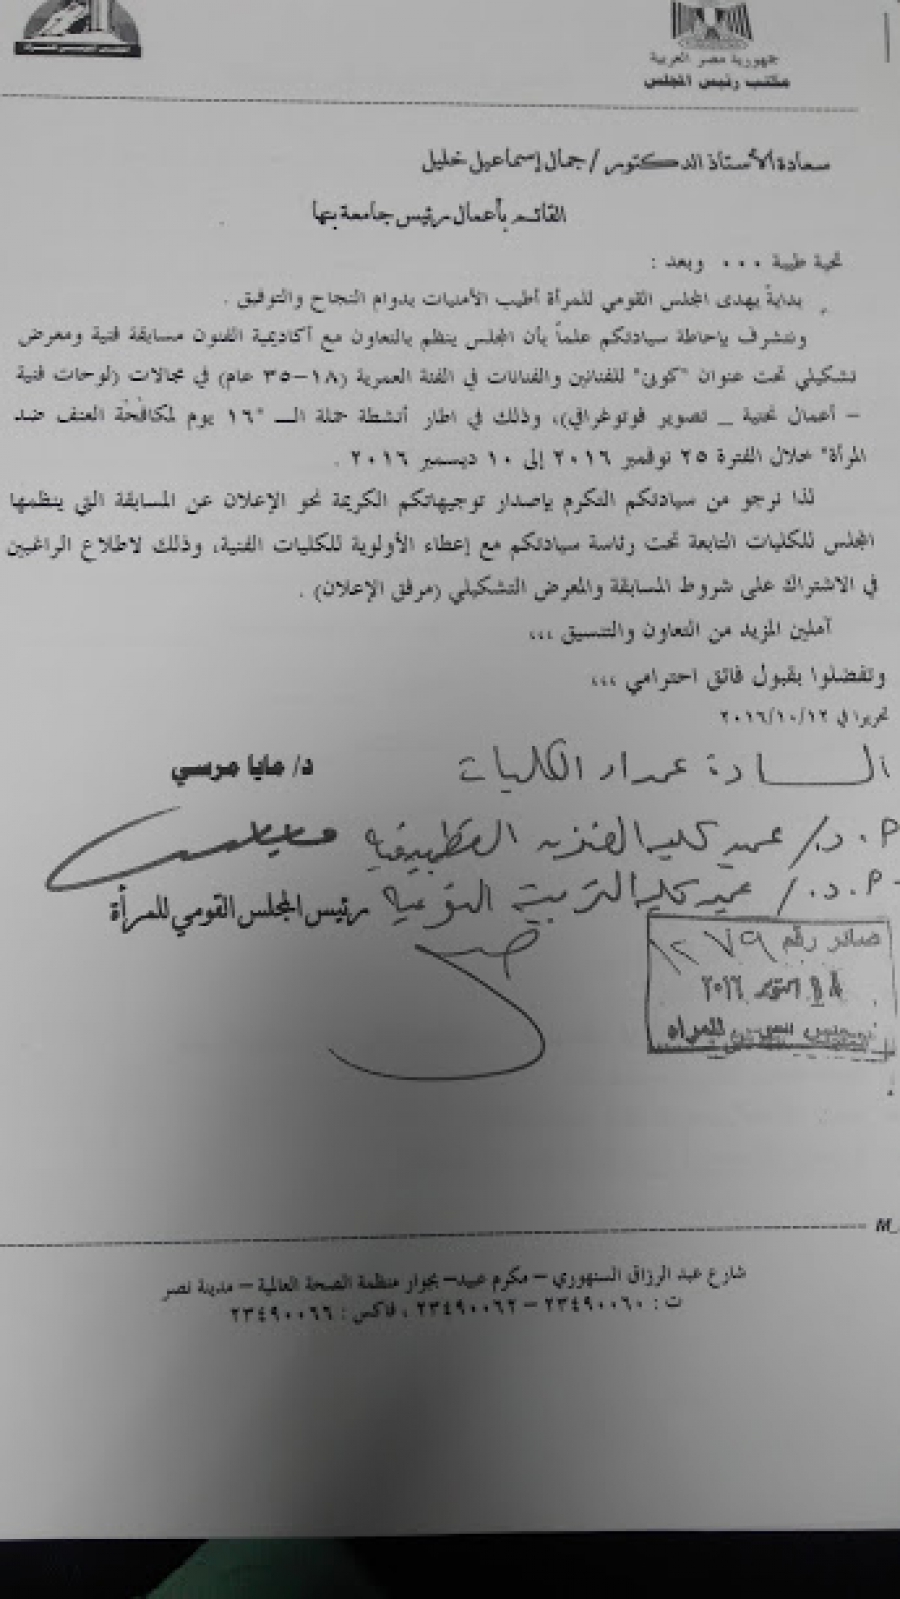 جمهورية مصر العربية
مكتب رئيس المجلس
سعادة الأستاذ الدكتور / جمال إسماعيل خليل
القائم بأعمال رئيس جامعة بنها
تحية طيبة ... وبعد :
بدايةً يهدى المجلس القومي للمرأة أطيب الأمنيات بدوام النجاح والتوفيق .
ونتشرف بإحاطة سيادتكم علماً بأن المجلس ينظم بالتعاون مع أكاديمية الفنون مسابقة فنية ومعرض
تشكيلي تحت عنوان "كوني" للفنانين والفنانات في الفئة العمرية (١٨-٣٥ عام) في مجالات (لوحات فنية
– أعمال نحتية – تصوير فوتوغرافي)، وذلك في اطار أنشطة حملة الـ "١٦ يوم لمكافحة العنف ضد
المرأة" خلال الفترة ٢٥ نوفمبر ٢٠١٦ إلى ١٠ ديسمبر ٢٠١٦ .
لذا نرجو من سيادتكم التكرم بإصدار توجيهاتكم الكريمة نحو الإعلان عن المسابقة التي ينظمها
المجلس للكليات التابعة تحت رئاسة سيادتكم مع إعطاء الأولوية للكليات الفنية، وذلك لاطلاع الراغبين
في الاشتراك على شروط المسابقة والمعرض التشكيلي (مرفق الإعلان) .
آملين المزيد من التعاون والتنسيق ،،،
وتفضلوا بقبول فائق احترامي ،،،
تحريرا في ٢٠١٦/١٠/١٢
السادة عمداء الكليات
د/ مايا مرسي
أ.د./ عميد كلية الفنون التطبيقية
أ.د./ عميد كلية التربية النوعية
رئيس المجلس القومي للمرأة
صادر رقم ١٢٧٩
أكتوبر ٢٠١٦
للمرأة
M
شارع عبد الرزاق السنهوري – مكرم عبيد– بجوار منظمة الصحة العالمية – مدينة نصر
ت : ٢٣٤٩٠٠٦٠ – ٢٣٤٩٠٠٦٢ ، فاكس : ٢٣٤٩٠٠٦٦